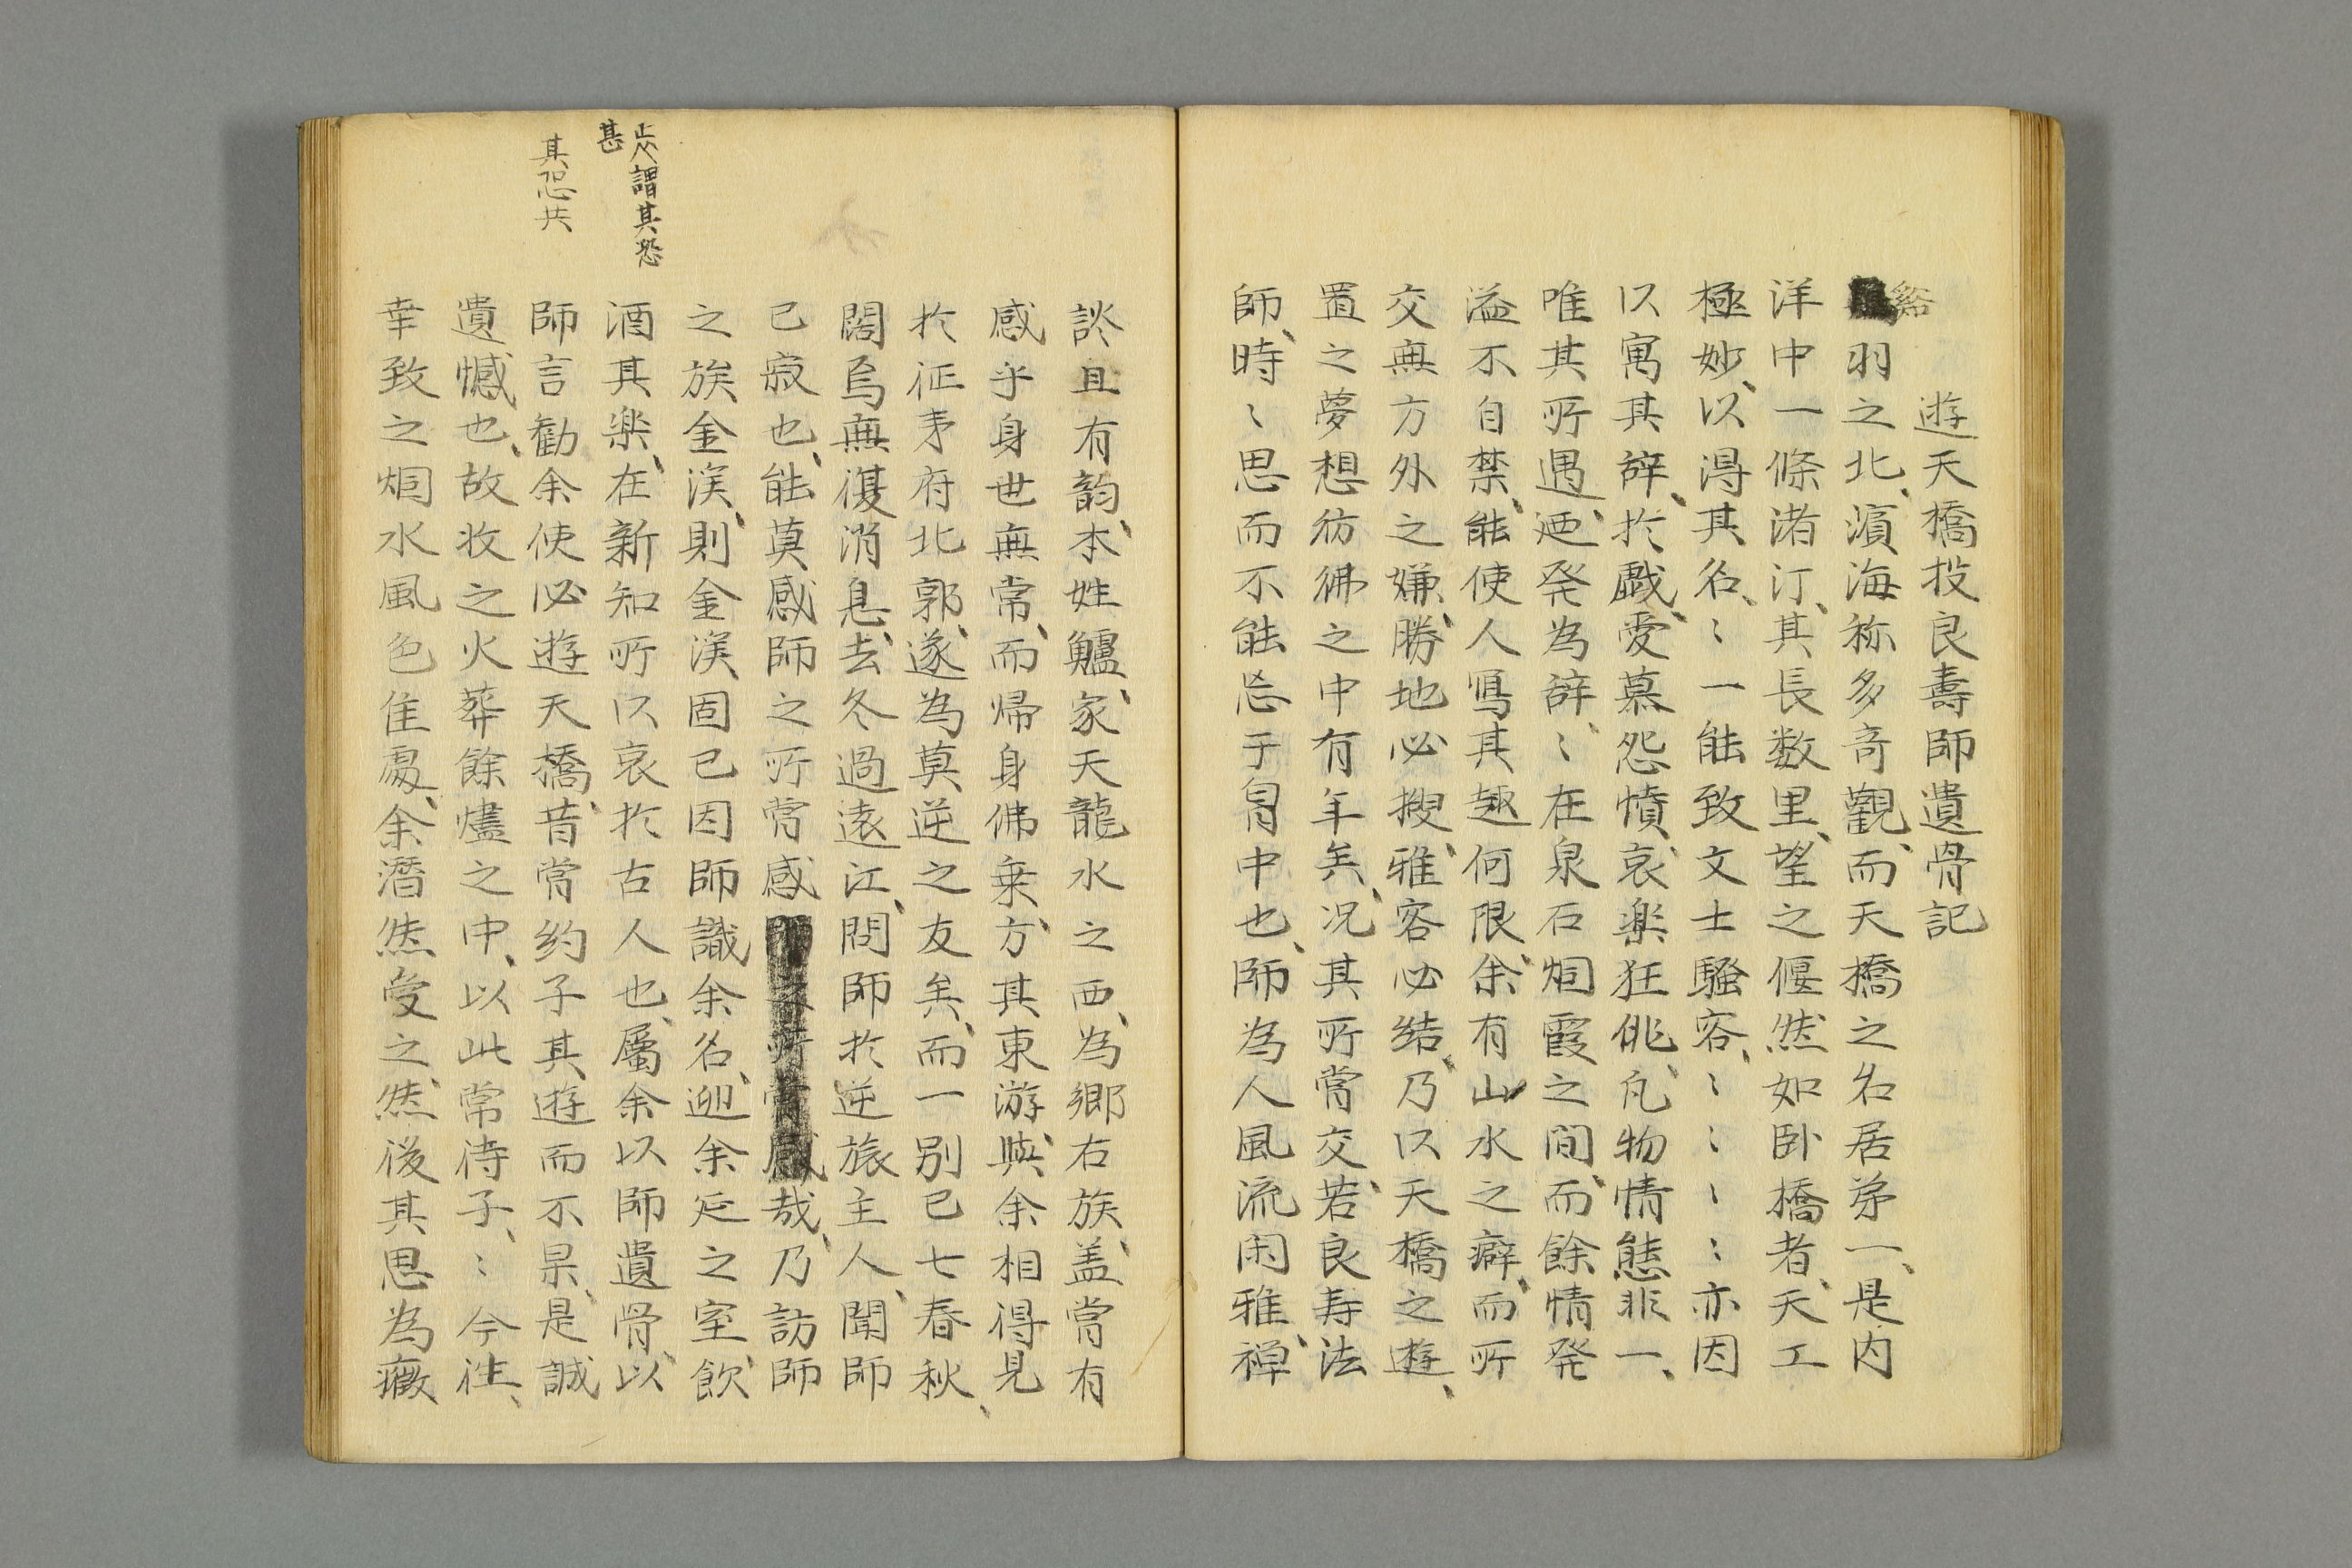 遊天橋投良壽師遺骨記
谿羽之北、濱海称多奇觀、而天橋之名居苐一、是内
洋中一條渚汀、其長数里、望之偃然如卧橋者、天工
極妙、以得其名、〻一能致文士騒客、〻〻〻〻亦因
以寓其辞、於戯、愛慕怨憤、哀楽狂俳、凡物情態非一、
唯其所遇、廼発為辞、〻在泉石烟霞之間、而餘情発
溢不自禁、能使人寫其趣何限、余有山水之癖、而所
交無方外之嫌、勝地必搜、雅客必结、乃以天橋之遊、
置之夢想彷彿之中有年矣、况其所嘗交、若良寿法
師、時〻思而不能忘于胷中也、師為人風流闲雅、禅
談且有韵、本姓鱸、家天龍水之西、為郷右族、盖嘗有
感乎身世無常、而帰身佛乗、方其東游、與余相得見
於征茅府北郭、遂為莫逆之友矣、而一别已七春秋、
闊焉無復消息、去冬過遠江、問師於逆旅主人、聞師
已寂也、能莫感師之所嘗感哉、乃訪師
之族金渓、則金渓固已因師識余名、迎余延之室、飲
酒其楽、在新知所以哀於古人也、屬余以師遺骨、以
師言勸余使必遊天橋、昔嘗约子其遊而不果、是誠
遺憾也、故收之火葬餘燼之中、以此常待子、〻今往、
幸致之烟水風色佳處、余潸然受之、然後其思為癥
必謂其恐
甚
其恐共